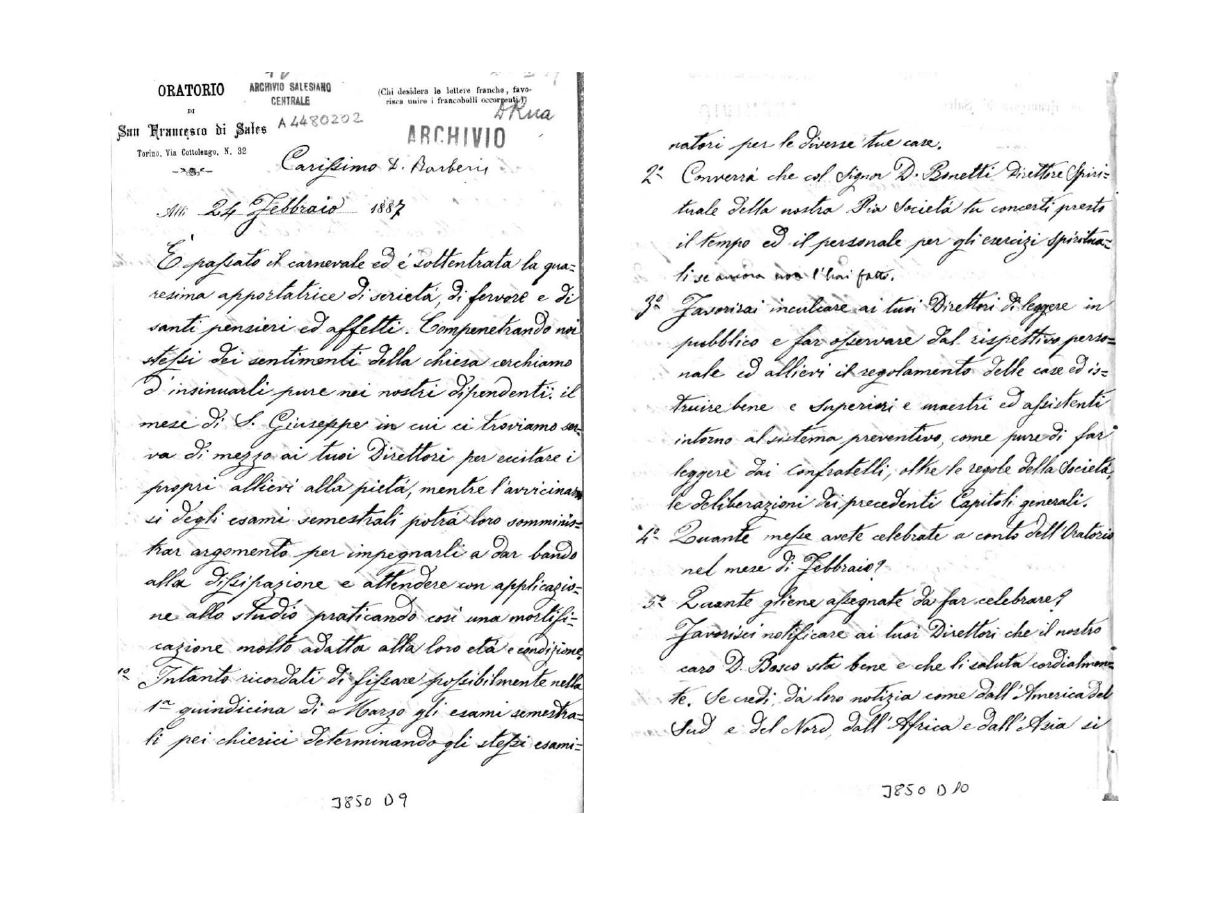 ORATORIO
DI
San Francesco di Sales
Torino, Via Cottolengo, N. 32
ARCHIVIO SALESIANO
CENTRALE
A4480202
(Chi desidera le lettere franche, favo-
risca unire i francobolli occorrenti.)
D Rua
ARCHIVIO
Carissimo D. Barberis
Alli 24 Febbraio 1887
È passato il carnevale ed è sottentrata la qua=
resima apportatrice di serietà, di fervore e di
santi pensieri ed affetti. Compenetrando noi
stessi dei sentimenti della chiesa cerchiamo
d'insinuarli pure nei nostri dipendenti. il
mese di S. Giuseppe in cui ci troviamo ser-
va di mezzo ai tuoi Direttori per eccitare i
propri allievi alla pietà, mentre l'avvicinar
si degli esami semestrali potrà loro somminis=
trar argomento per impegnarli a dar bando
alla dissipazione e attendere con applicazio=
ne allo studio praticando così una mortifi=
cazione molto adatta alla loro età e condizione.
1º Intanto ricordati di fissare possibilmente nella
1ª quindicina di Marzo gli esami semestra-
li pei chierici determinando gli stessi esami=
J850 D9
natori per le diverse tue case.
2º Converrà che col Signor D. Bonetti Direttore Spiri=
tuale della nostra Pia Società tu concerti presto
il tempo ed il personale per gli esercizi spiritua=
li se ancora non l'hai fatto.
3º Favorirai inculcare ai tuoi Direttori di leggere in
pubblico e far osservare dal rispettivo perso=
nale ed allievi il regolamento delle case ed is=
truire bene e Superiori e maestri ed assistenti
intorno al sistema preventivo, come pure di far
leggere dai confratelli, oltre le regole della Società,
le deliberazioni dei precedenti Capitoli generali.
4º Quante messe avete celebrate a conto dell'Oratorio
nel mese di Febbraio?
5º Quante gliene assegnate da far celebrare?
Favorisci notificare ai tuoi Direttori che il nostro
caro D. Bosco sta bene e che li saluta cordialmen=
te. Se credi, dà loro notizia come dall'America del
Sud e del Nord, dall'Africa e dall'Asia si
J850 D10